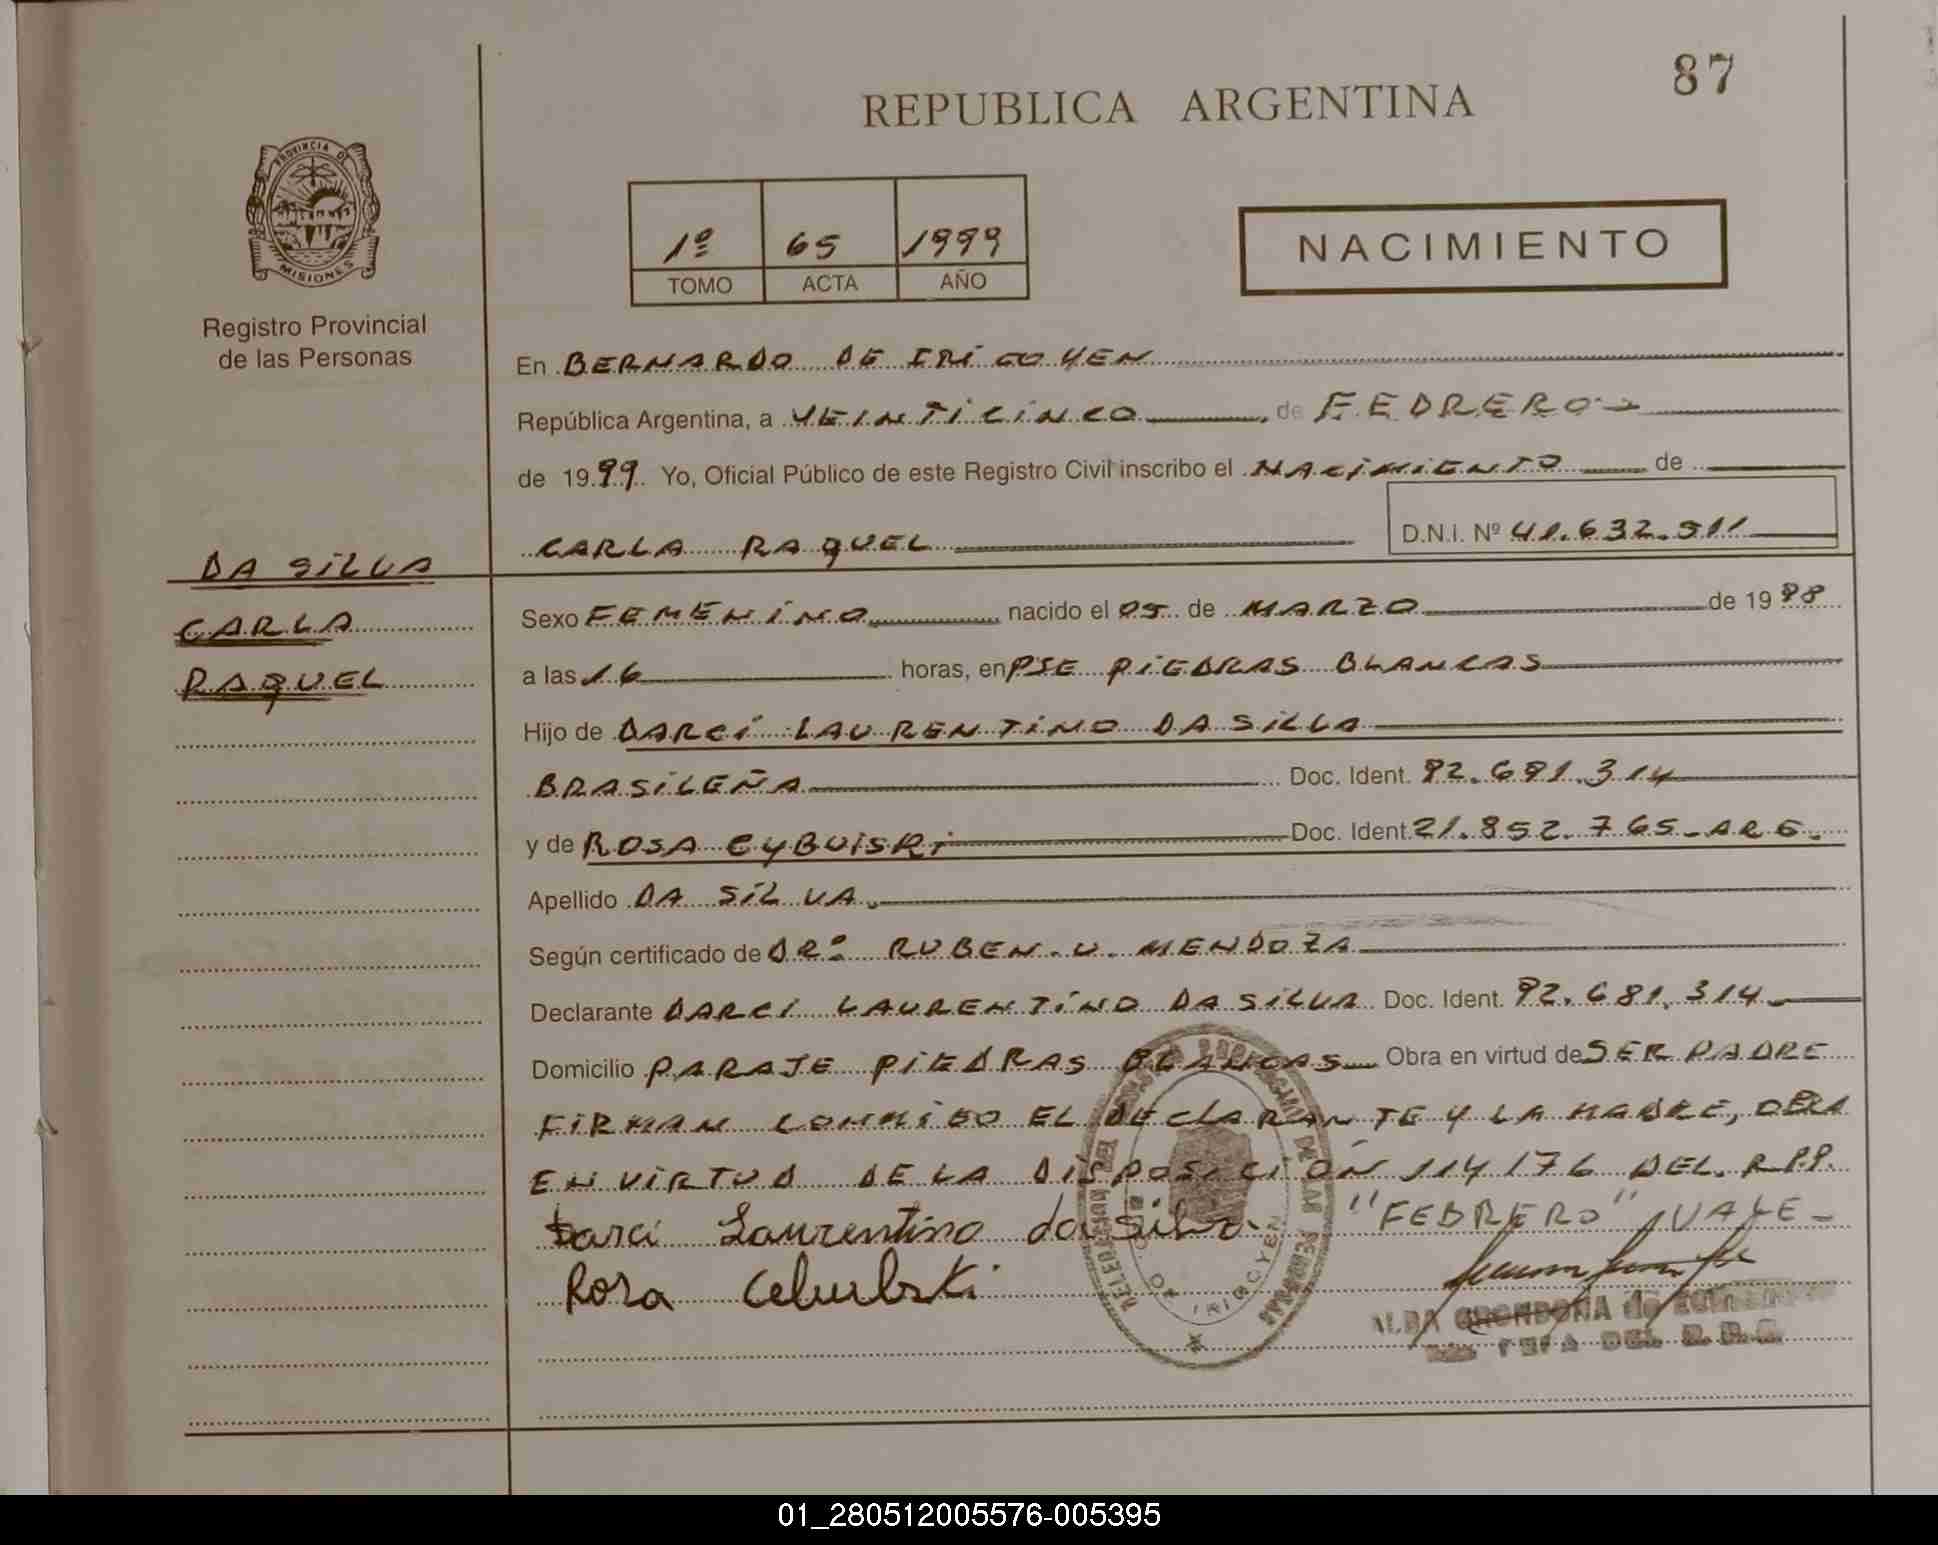 87
REPUBLICA ARGENTINA
PROVINCIA DE
MISIONES
1º 65 1999
TOMO ACTA AÑO
NACIMIENTO
Registro Provincial
de las Personas
En BERNARDO DE IRIGOYEN
República Argentina, a VEINTICINCO, de FEDRERO
de 1999 Yo, Oficial Público de este Registro Civil inscribo el NACIMIENTO de
CARLA RAQUEL D.N.I. Nº 41.632.511
DA SILVA
CARLA
RAQUEL
Sexo FEMENINO nacido el 05 de MARZO de 1998
a las 16 horas, en PJE PIEDRAS BLANCAS
Hijo de DARCI LAURENTINO DA SILVA
BRASILEÑA Doc. Ident. 92.681.314
y de ROSA Doc. Ident. 21.852.765-ARG.
Apellido DA SILVA.
Según certificado de DR. RUBEN.U. MENDOZA
Declarante DARCI LAURENTINO DA SILVA Doc. Ident. 92.681.314
Domicilio PARAJE PIEDRAS BLANCAS Obra en virtud de SER PADRE
FIRMAN CONMIGO EL DECLARANTE Y LA MADRE, OBRA
EN VIRTUD DE LA DISPOSICIÓN 114/76 DEL R.P.P.
Darci Laurentino da Silva "FEBRERO" VALE-
Rosa
DE IRIGOYEN
DE LAS PERSONAS
ALBA GRONDONA de
DEL
01_280512005576-005395